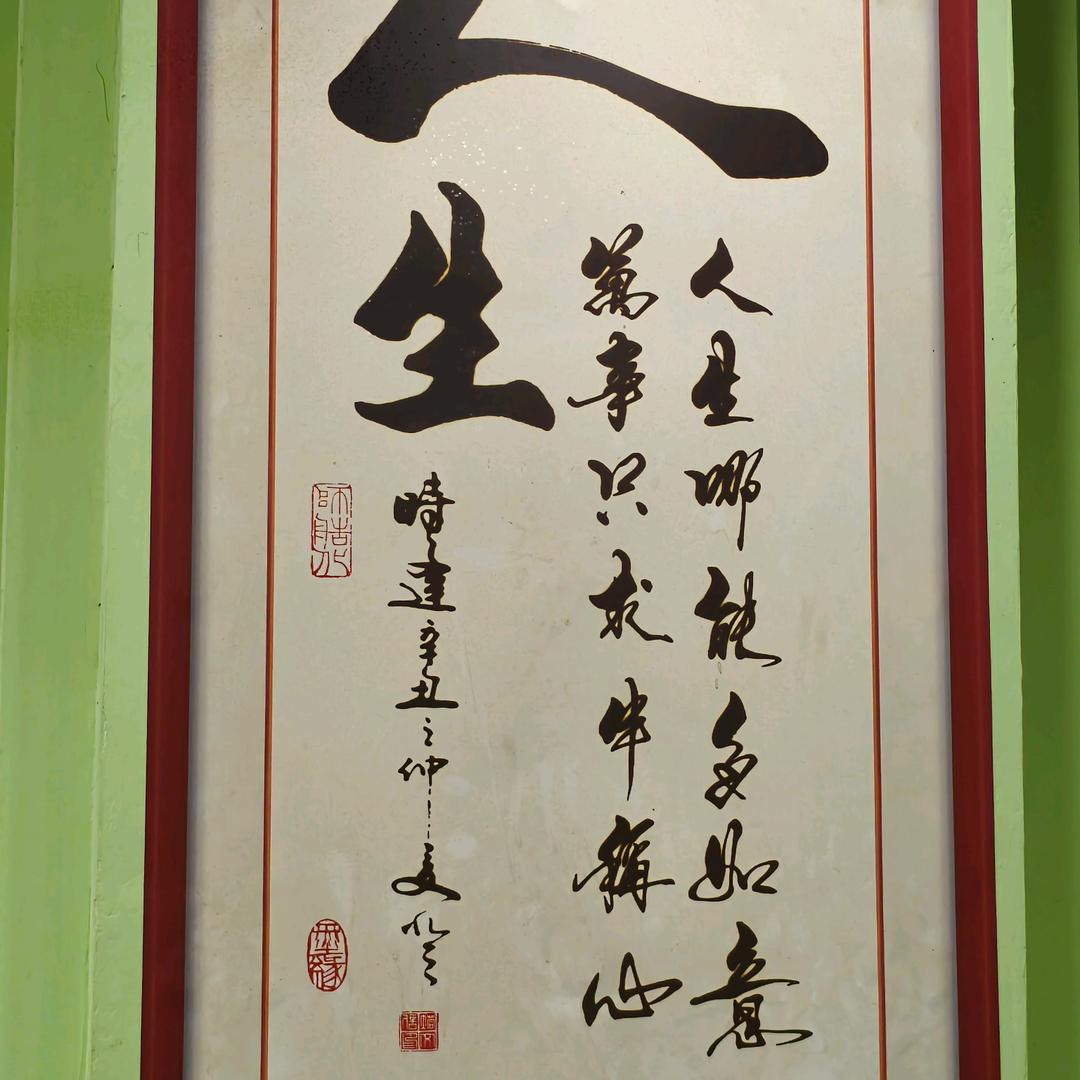 人生
人生哪能多如意
萬事只求半稱心
辛丑之仲夏